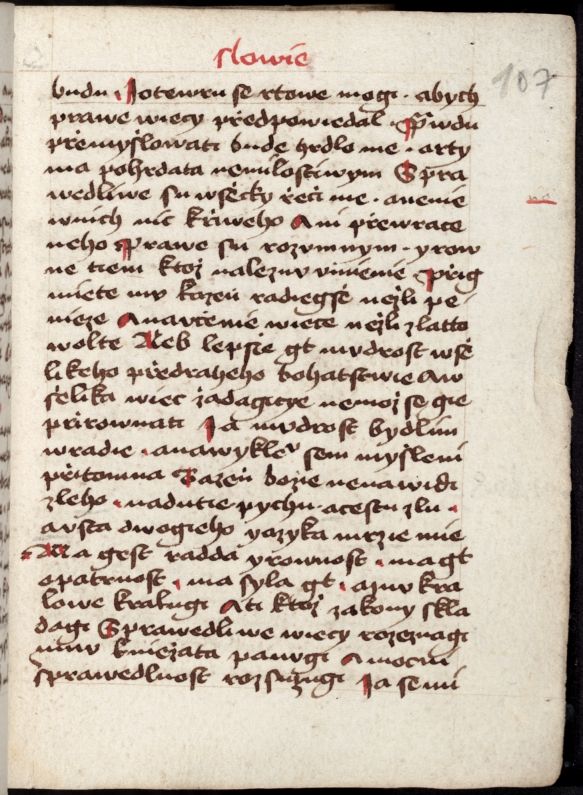 slowie
107
budu · Potewru se rtowe mogi · abych
prawe wieczy předpowiedal · Prawdu
přemyslowati bude hrdlo me · arty
ma pohrdata nemilostiwym Spra
wedliwe su wsěcky řeči me · anenie
wnich nic křiweho Ani přewrace
neho Prawe su rozumnym · yrow
ne tiem ktoz naleznu umienie Přig
miete mu kazen radiegsě nezli pe
nieze Anaučenie wiece nezli zlatto
wolte Neb lepsie gt mudrost wsě
likeho předraheho bohatstwie Aw
sělika wiec zadagicye nemoz se gie
přirownati Ja mudrost bydlim
wradie · anawykle sem myslení
přitomna Bazen bozie nenawidi
zleho · nadutie pychu · acestu zlu ·
austa dwogieho yazyka mrzie mie
Ma gest radda yrownost · ma gt
opatrnost · ma syla gt · a mu kra
lowe kralugi Ati ktoz zakony skla
dagi Sprawedliwe wieczy rozeznagi
mnu kniezata panugi A mocni
sprawedlnost rozsuzugi Ja se mi